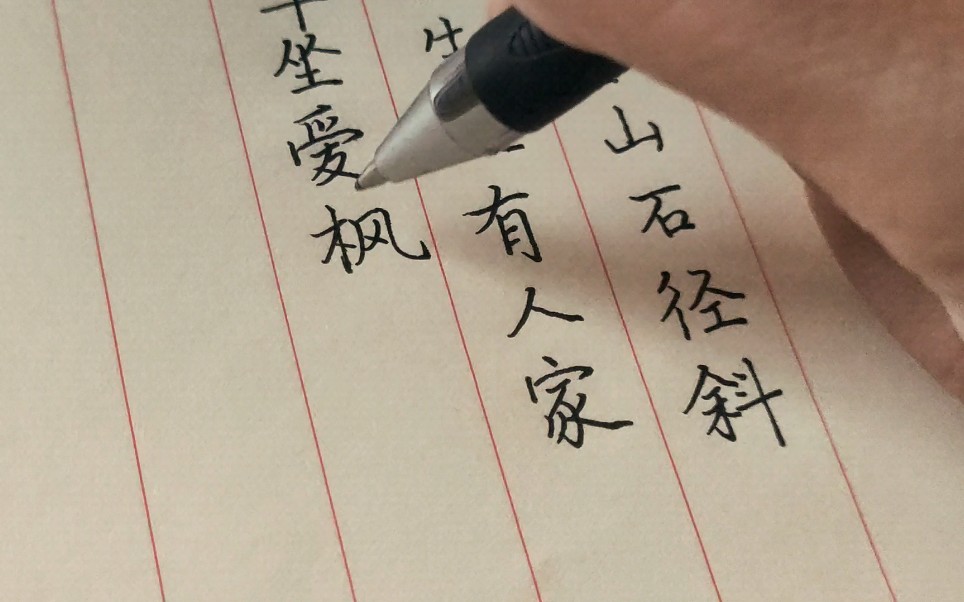 山石径斜
生
有人家
坐爱枫